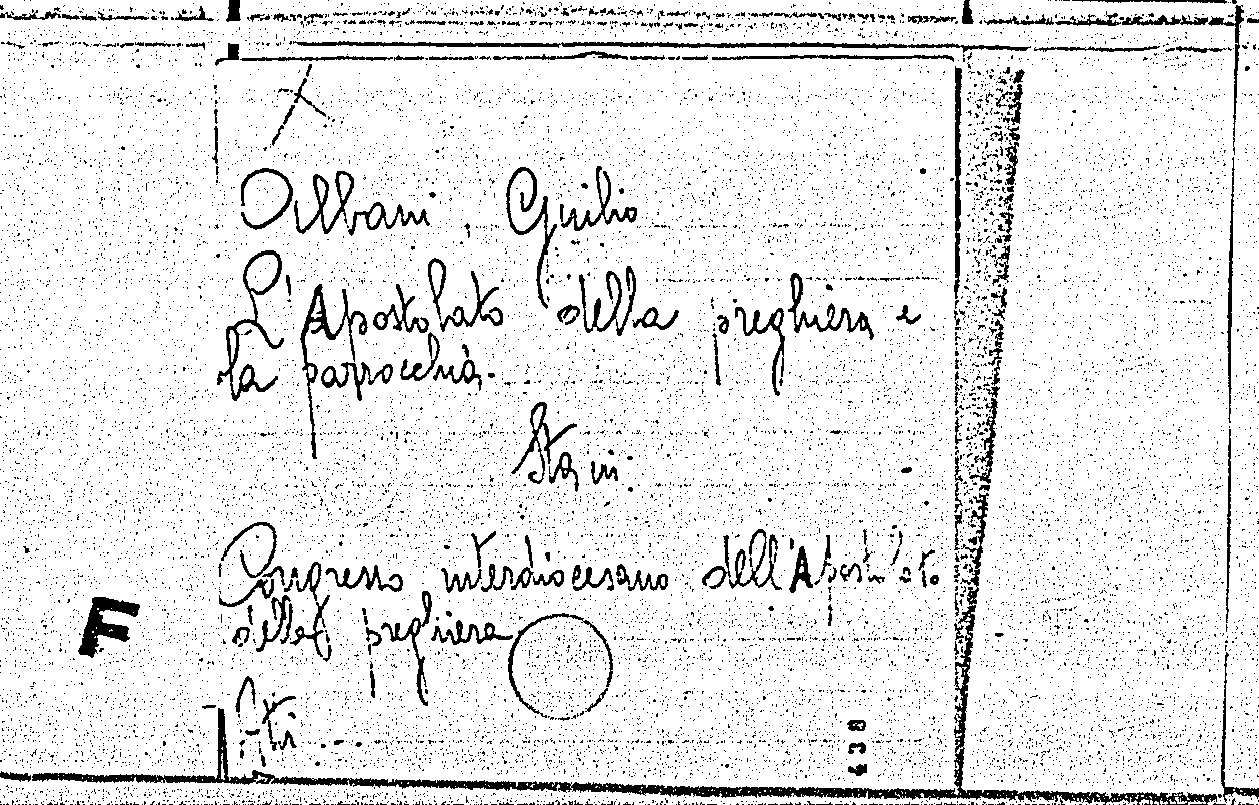 Albani, Giulio
L'Apostolato della preghiera e
la parrocchia.
Sta in:
Congresso interdiocesano dell'Apostolato
della preghiera
Atti ...
F
438